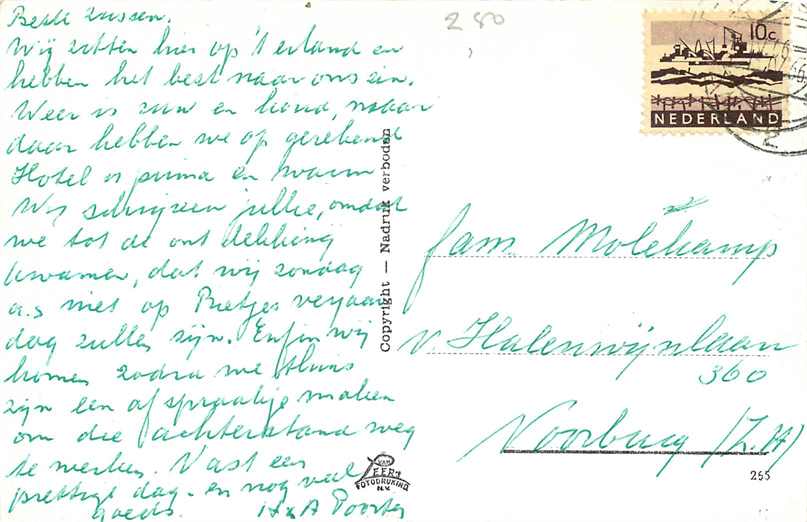 Beste zussen.
Wij zitten hier op 't eiland en
hebben het best naar ons zin.
Weer is ruw en koud, maar
daar hebben we op gerekend
Hotel is prima en warm
Wij schrijven jullie, omdat
we tot de ontdekking
kwamen, dat wij zondag
a.s niet op Pietjes verjaar
dag zullen zijn. Enfin wij
komen zodra we thuis
zijn een afspraakje maken
om die achterstand weg
te werken. Vast een
prettige dag en nog veel
goeds. H & A Poorter
280
10c
NEDERLAND
Copyright — Nadruk verboden
fam. Molekamp
v. Halenwijnlaan
360
Voorburg (Z.H)
VAN
LEER'S
FOTODRUKIND
N.V.
255